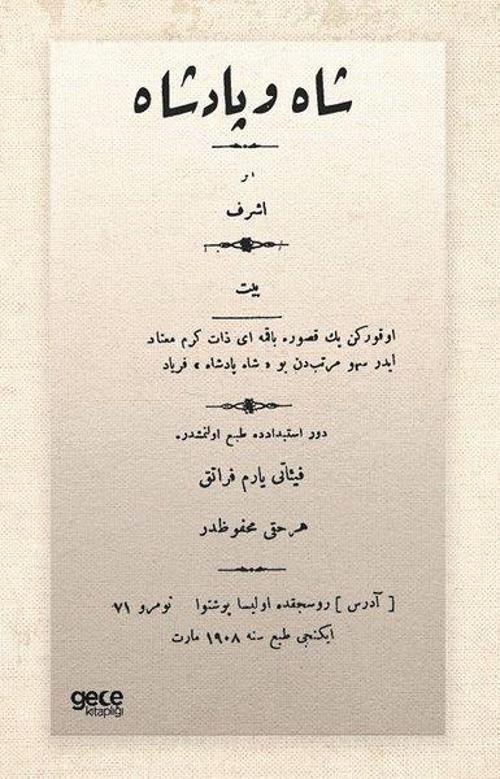 شاه و پادشاه
اثر
اشرف
بیت
اوقوركن پك قصوره باقمه ای ذات كرم معتاد
ایدر سهو مرتب‌دن بو « شاه پادشاه » فریاد
دور استبدادده طبع اولنمشدر.
فیئاتی یارم فرانق
هر حقی محفوظدر
[ آدرس ] روسجقده اولیسا پوشتوا نومرو ۷۱
ایكنجی طبع سنه ۱۹۰۸ مارت
gece
kitaplığı